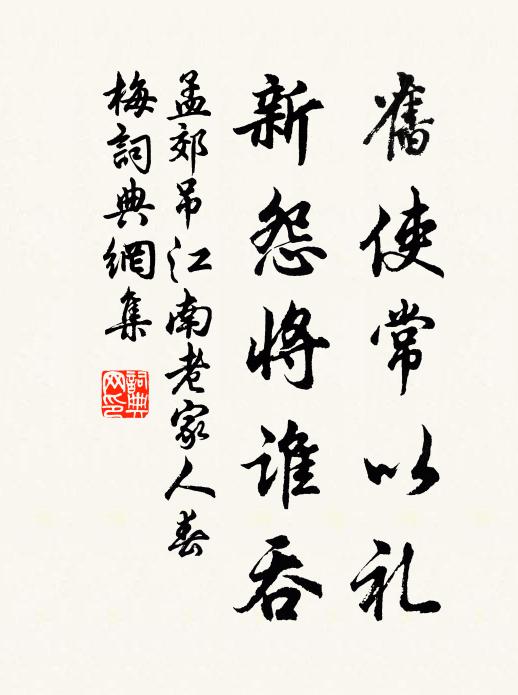 舊使常以礼
新怨将誰吞
孟郊吊江南老家人春
梅詞典網集
詞典網印